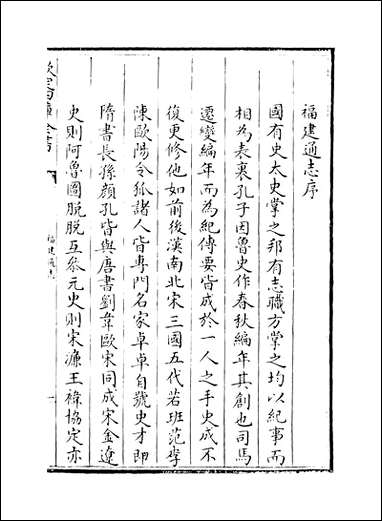 福建通志序
國有史太史掌之邦有志職方掌之均以紀事而
相為表裏孔子因魯史作春秋編年其創也司馬
遷變編年而為紀傳要皆成於一人之手史成不
復更修他如前後漢南北宋三國五代若班范李
陳歐陽令狐諸人皆專門名家卓卓自號史才即
隋書長孫顏孔皆與唐書劉韋歐宋同成宋金遼
史則阿魯圖脫脫互叅元史則宋濂王褘協定亦
福建通志